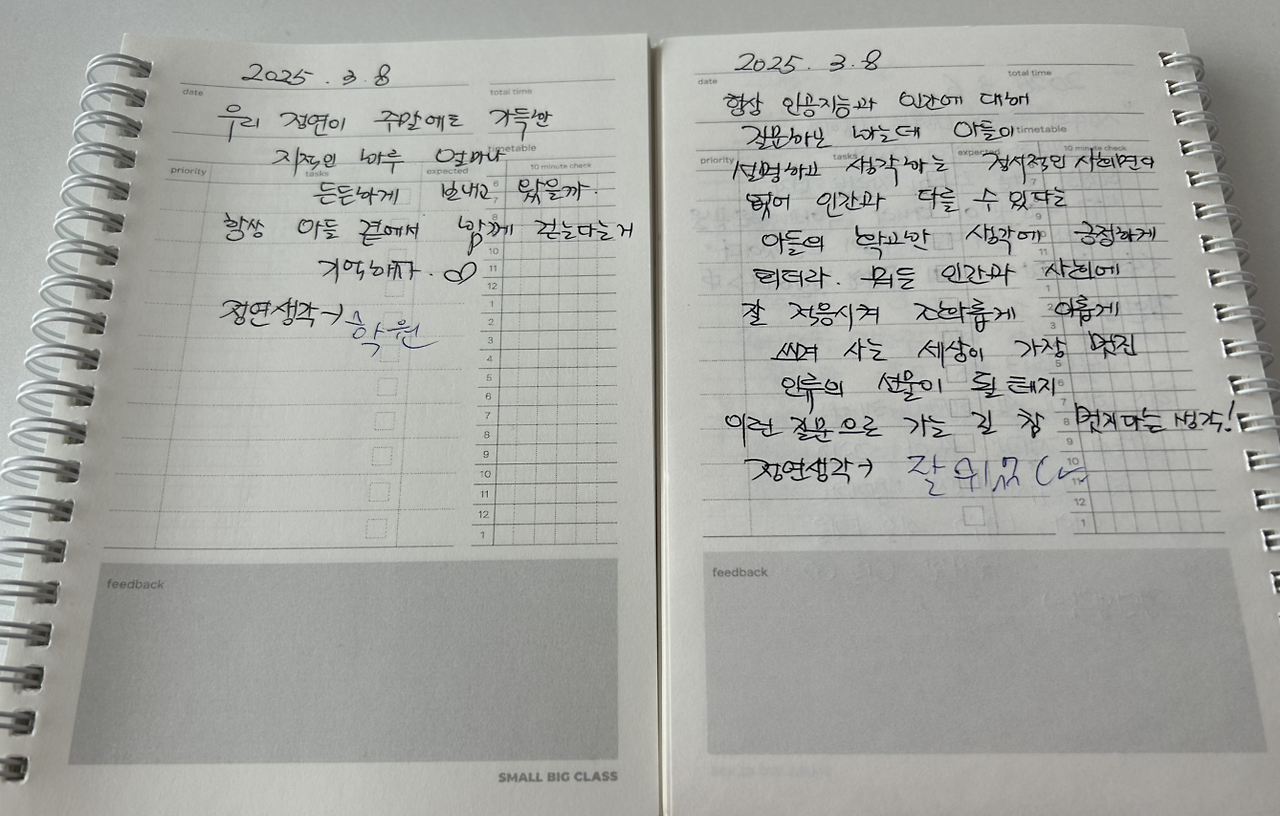 2025. 3. 8
date
total time
우리 정연이 주말에도 가득한
지적인 하루 얼마나
timetable
priority
tasks
expected
10 minute check
든든하게 보내고 왔을까.
항상 아들 곁에서 함께 걷는다는거
기억하자.
정연생각→ 학원
6
7
8
10
11
12
1
2
3
4
5
6
7
8
9
10
11
12
1
feedback
SMALL BIG CLASS
2025. 3. 8
date
total time
항상 인공지능과 인간에 대해
질문하곤 하는데 아들이
timetable
priority
tasks
expected
10 minute check
설명하고 생각하는 정서적인 사회면이
있어 인간과 다를 수 있다는
아들의 확고한 생각에 긍정하게
되더라. 뭐든 인간과 사회에
잘 적응시켜 조화롭게 이롭게
쓰며 사는 세상이 가장 멋진
인류의 선물이 될 테지
이런 질문으로 가는 길 참 멋지다는 생각!
정연생각→ 잘
7
9
11
1
2
3
5
6
7
8
9
10
11
12
1
feedback